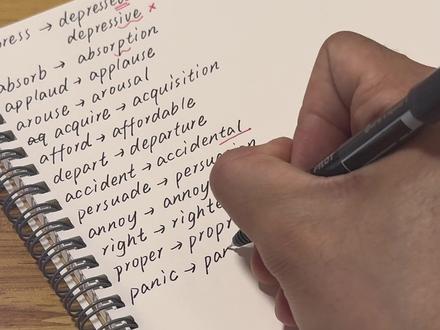 ress → depressed
depressive ×
absorb → absorption
applaud → applause
arouse → arousal
acquire → acquisition
afford → affordable
depart → departure
accident → accidental
persuade → persuasion
annoy → annoy
right → righte
proper → propr
panic → pan